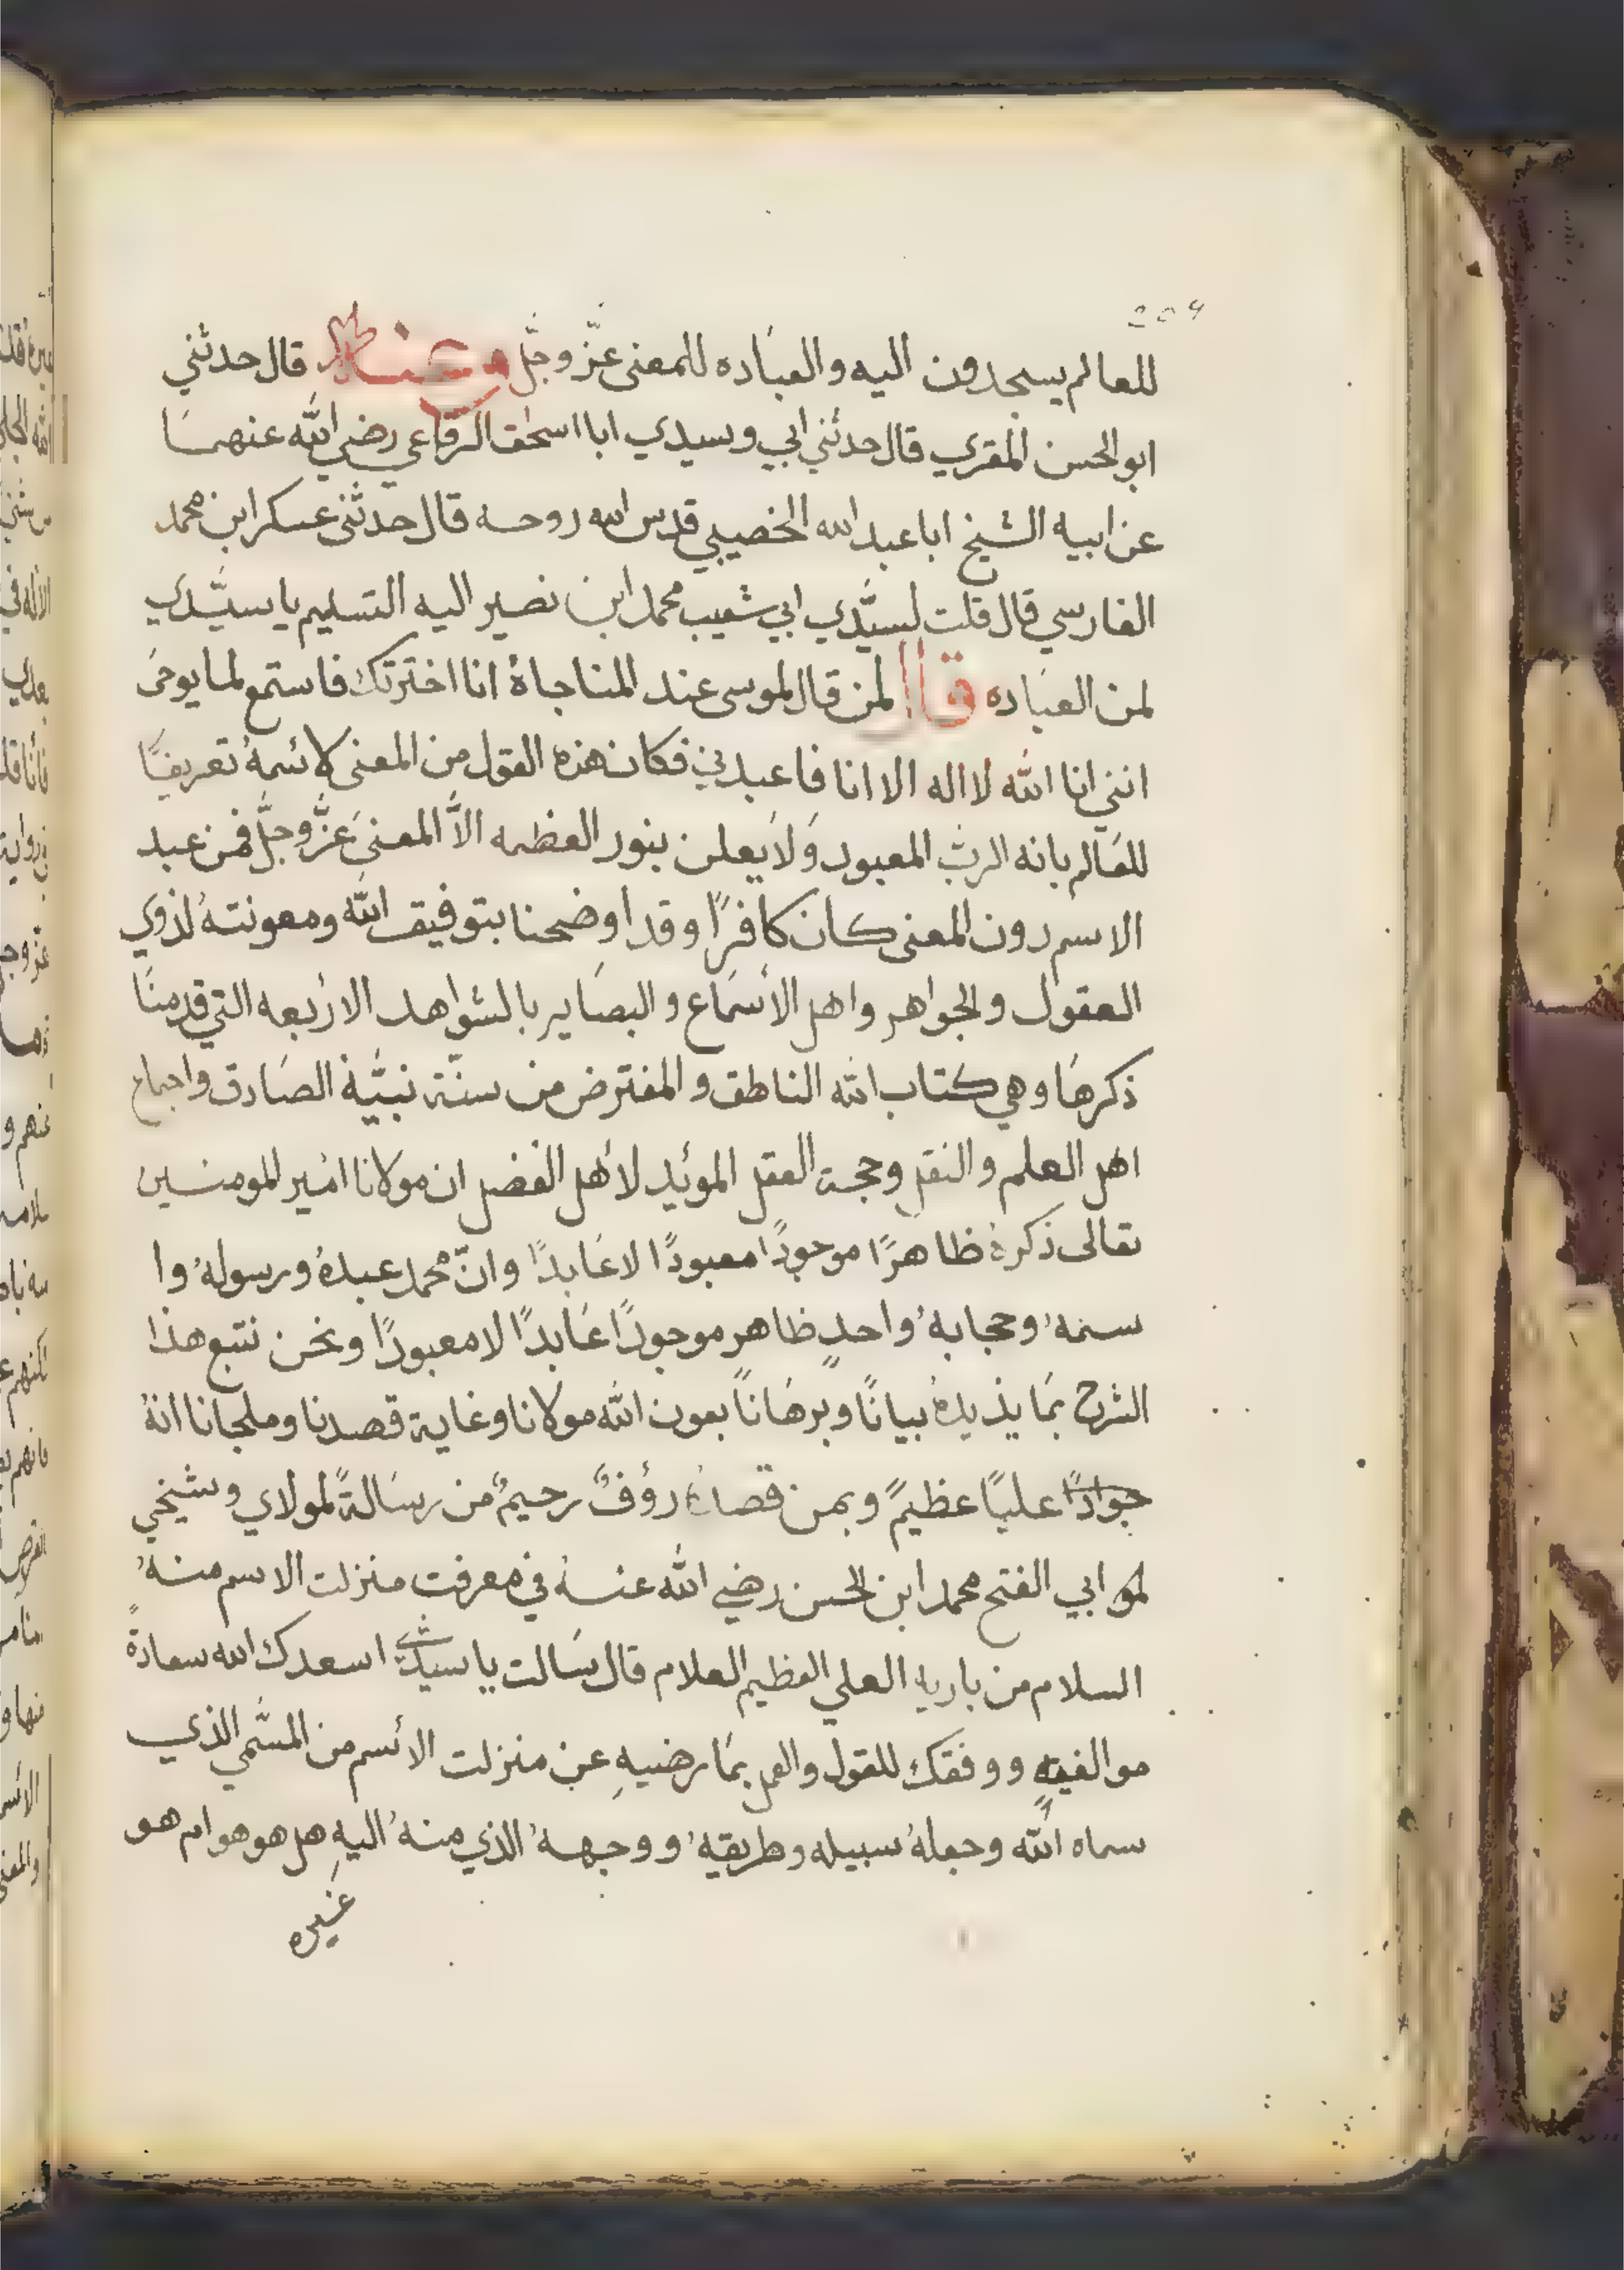 204
للعالم يسجدون اليه والعباده للمعنى عزّ وجلّ وعنه قال حدثني
ابو الحسن المقري قال حدثني ابي وسيدي ابا اسحق الرقاعي رضي الله عنهما
عن ابيه الشيخ ابا عبد الله الخصيبي قدس الله روحه قال حدثني عسكر ابن محمد
الفارسي قال قلت لسيّدي ابي شعيب محمد ابن نصير اليه التسليم يا سيّدي
لمن العباده قال لمن قال لموسى عند المناجاة انا اخترتك فاستمع لما يوحى
انني انا الله لا اله الا انا فاعبدني فكان هذه القول من المعنى لائسمهُ تعريفًا
للعالم بانه الرب المعبود ولا يعلن بنور العظمه الاّ المعنى عزّ وجلّ فمن عبد
الاسم دون المعنى كان كافرًا وقد اوضحنا بتوفيق الله ومعونتهُ لذوي
العقول والجواهر واهل الأسماع والبصاير بالشواهد الاربعه التي قدمنا
ذكرها وهي كتاب الله الناطق والمفترض من سنّة نبيّه الصادق واجماع
اهل العلم والنقل وحجة العقل الموئيد لأهل الفضل ان مولانا امير المومنين
تعالى ذكرهُ ظاهرًا موجودًا معبودًا لا عابدًا وانّ محمد عبدهُ ورسولهُ وا
سمهُ وحجابهُ واحدٍ ظاهر موجودًا عابدًا لا معبودًا ونحن نتبع هذا
الشرح بما يذيدهُ بيانًا وبرهانًا بعون الله مولانا وغاية قصدنا وملجانا انهُ
جوادًا عليًا عظيمً وبمن قصدهُ رؤفٌ رحيمٌ من رسالةً لمولاي وشيخي
لمو ابي الفتح محمد ابن الحسن رضي الله عنهُ في معرفت منزلت الاسم منهُ
السلام من باريه العلي العظيم العلام قال سالت يا سيدي اسعدك الله سعادةً
موالفيهٍ ووفقك للقول والعمل بما رضيهِ عن منزلت الائسم من المسّمي الذي
سماه الله وجعلهُ سبيله وطريقهُ ووجههُ الذي منهُ اليهِ هل هو هو ام هو
غيره